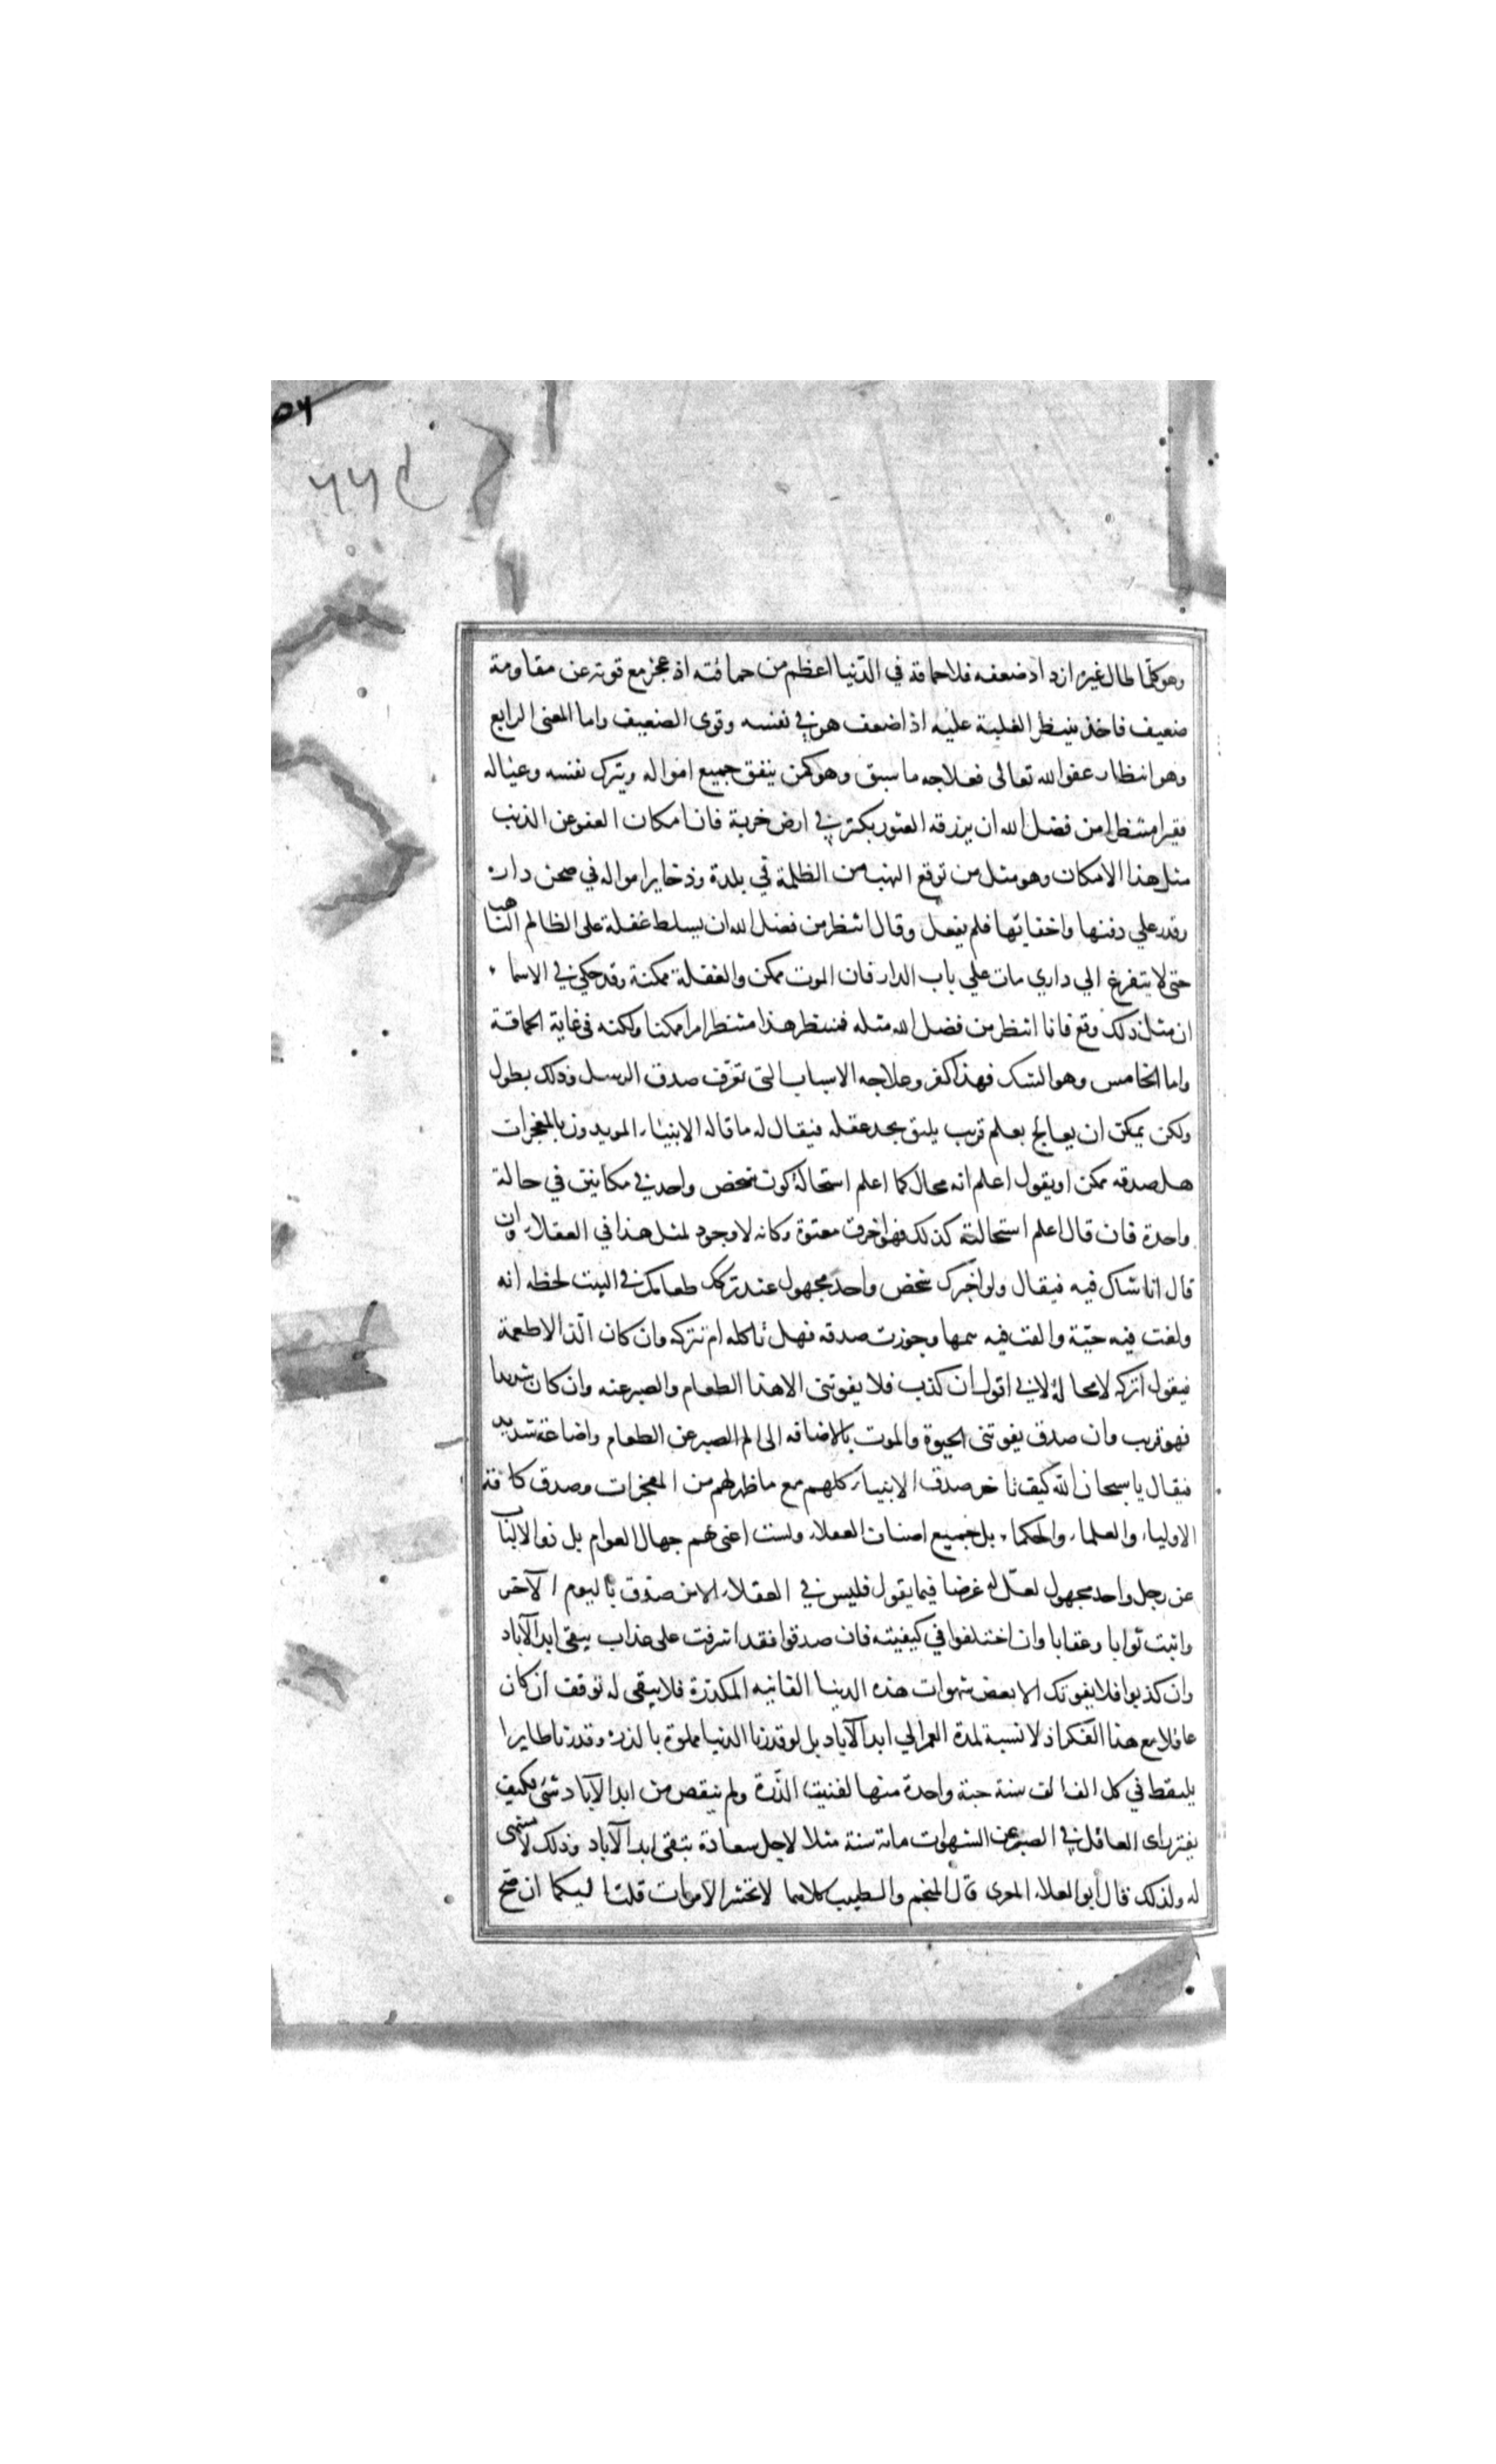 وهو كلّما طال غيره ازداد ضعفه فلا حماقة في الدّنيا اعظم من حماقته اذ عجز مع قوته عن مقاومة
ضعيف فاخذ ينتظر الغلبة عليه اذا ضعف هو في نفسه وقوى الضعيف واما المعنى الرابع
وهو انتظار عفو الله تعالى فعلاجه ما سبق وهو كمن ينفق جميع امواله ويترك نفسه وعياله
فقيرا منتظرا من فضل الله ان يرزقه العثور بكنز في ارض خربة فان امكان العفو عن الذنب
مثل هذا الامكان وهو مثل من توقع النهب من الظلمة في بلدة وذخاير امواله في صحن داره
وقدر على دفنها واخفايها فلم يفعل وقال انتظر من فضل الله ان يسلط غفلة على الظالم الناهب
حتى لا يتفرغ الي داري مات علي باب الدار فان الموت ممكن والغفلة ممكنة وقد حكي في الاسما
ان مثل ذلك وقع فانا انتظر من فضل الله مثله فمنتظر هذا منتظر امرا ممكنا ولكنه في غاية الحماقة
واما الخامس وهو الشك فهذا كفر وعلاجه الاسباب التي تعرّف صدق الرسل وذلك يطول
ولكن يمكن ان يعالج بعلم قريب يليق بحد عقله فيقال له ما قاله الانبياء المويدون بالمعجزات
هل صدقه ممكن او يقول اعلم انه محال كما اعلم استحالة كون شخص واحد في مكانين في حالة
واحدة فان قال اعلم استحالته كذلك فهو اخرق معتوه وكانه لا وجود لمثل هذا في العقلاء وان
قال انا شاك فيه فيقال ولو اخبرك شخص واحد مجهول عند تركك طعامك في البيت لحظه انه
ولغت فيه حيّة والقت فيه سمها وجوزت صدقه فهل تاكله ام تتركه وان كان الّذ الاطعمة
فيقول اتركه لا محالة لاني اقول ان كذب فلا يفوتني الا هذا الطعام والصبر عنه وان كان شديدا
فهو قريب وان صدق يفوتني الحيوة والموت بالاضافه الى الم الصبر عن الطعام واضاعته شديد
فيقال يا سبحان الله كيف تاخر صدق الانبياء كلهم مع ما ظهر لهم من المعجزات وصدق كافة
الاولياء والعلماء والحكماء بل جميع اصناف العقلاء ولست اعني بهم جهال العوام بل ذو الالباب
عن رجل واحد مجهول لعلّ له غرضا فيما يقول فليس في العقلاء الا من صدق باليوم الآخر
واثبت ثوابا وعقابا وان اختلفوا في كيفيته فان صدقوا فقد اشرفت على عذاب يبقى ابد الآباد
وان كذبوا فلا يفوتك الا بعض شهوات هذه الدينا الفانيه المكدّرة فلا يبقى له توقف ان كان
عاقلا مع هذا الفكر اذ لا نسبة لمدة العمر الي ابد الآباد بل لو قدرنا الدنيا مملوة بالذرة وقدرنا طايرا
يلتقط في كل الف الف سنة حبة واحدة منها لفنيت الذّرة ولم ينقص من ابد الآباد شئ فكيف
يفتر راى العاقل في الصبر عن الشهوات ماتة سنة مثلا لاجل سعادة تبقى ابد الآباد وذلك لا منتهى
له ولذلك قال أبو العلاء المعرى قال المنجم والطبيب كلاهما لا تحشر الاموات قلت اليكما ان صح